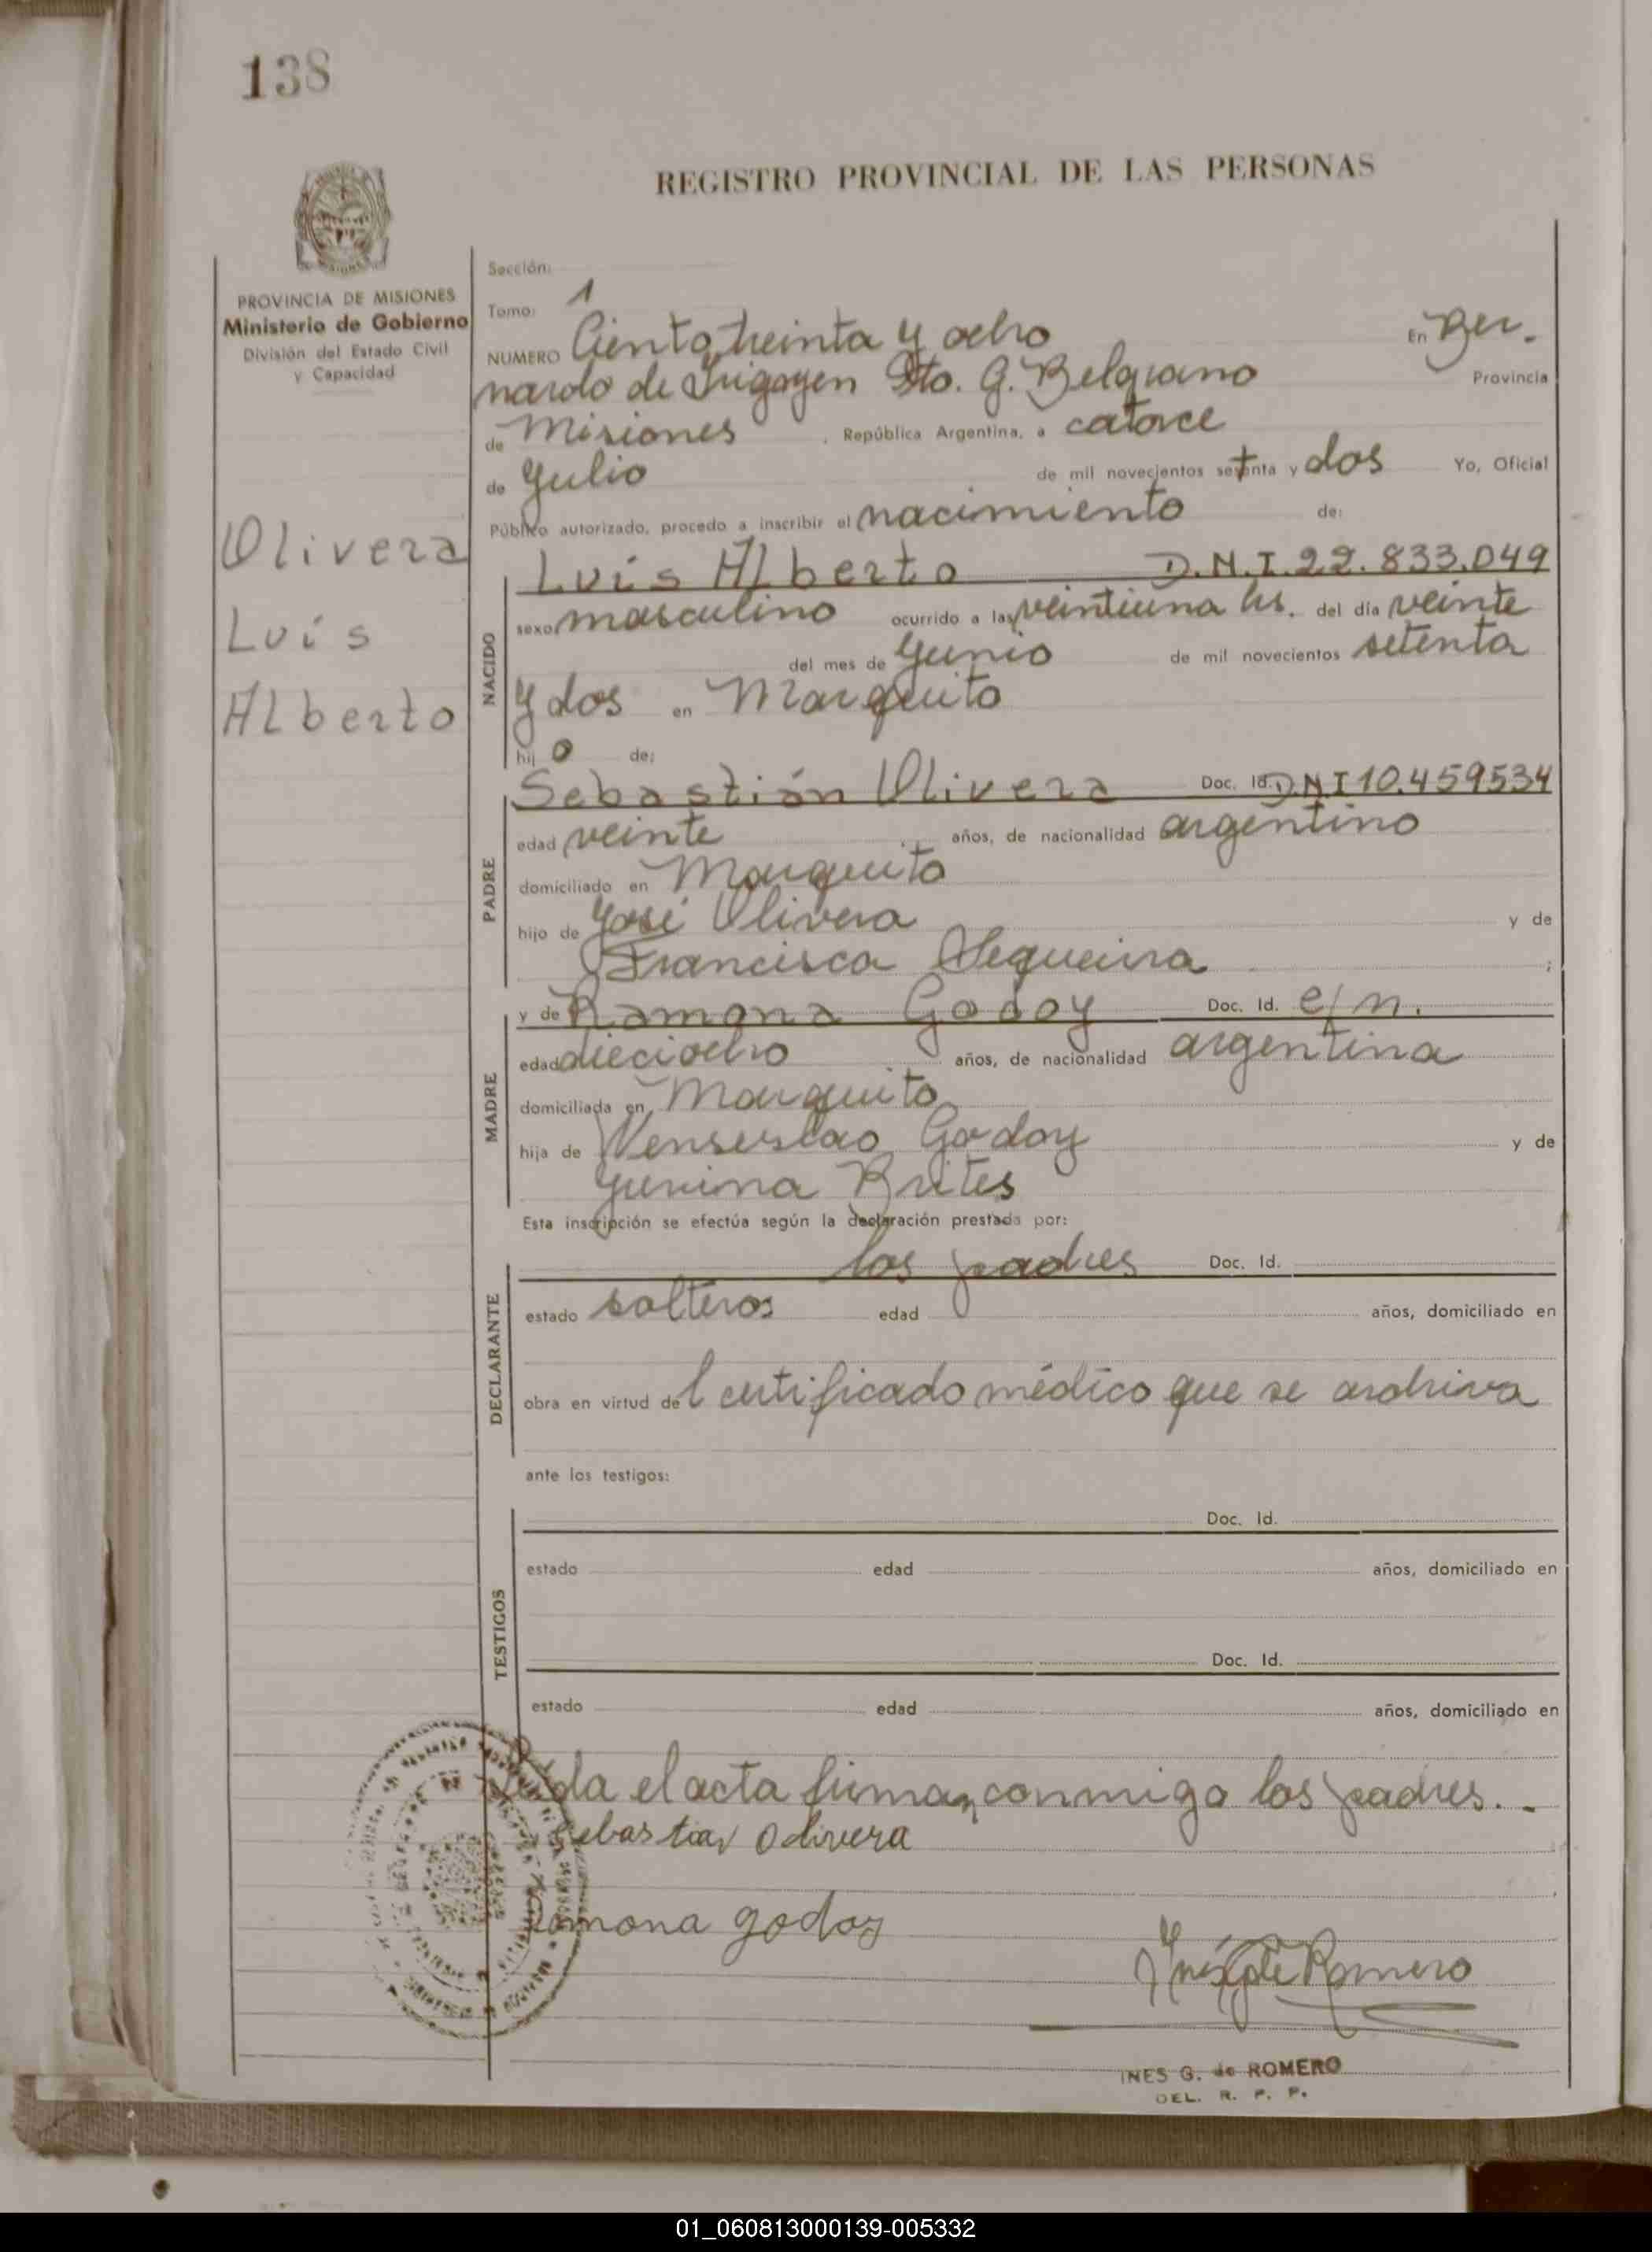 138
REGISTRO PROVINCIAL DE LAS PERSONAS
PROVINCIA DE MISIONES
Ministerio de Gobierno
División del Estado Civil
y Capacidad
Olivera
Luis
Alberto
Sección:
Tomo: 1
NUMERO Ciento treinta y ocho En Ber-
nardo de Irigoyen Dto. G. Belgrano Provincia
de Misiones, República Argentina, a catorce
de Julio de mil novecientos setenta y dos Yo, Oficial
Público autorizado, procedo a inscribir el nacimiento de:
NACIDO
Luis Alberto D.N.I. 22.833.049
sexo masculino ocurrido a las veintiuna hs. del día veinte
del mes de Junio de mil novecientos setenta
y dos en Marquito
hij o de:
PADRE
Sebastián Olivera Doc. Id. D.N.I 10.459534
edad veinte años, de nacionalidad argentino
domiciliado en Marquito
hijo de José Olivera y de
Francisca Sequeira ;
MADRE
y de Ramona Godoy Doc. Id. e/n.
edad dieciocho años, de nacionalidad argentina
domiciliada en Marquito
hija de Venseslao Godoy y de
Brites
Esta inscripción se efectúa según la declaración prestada por:
DECLARANTE
los padres Doc. Id.
estado solteros edad años, domiciliado en
obra en virtud del certificado médico que se archiva
ante los testigos:
TESTIGOS
Doc. Id.
estado edad años, domiciliado en
Doc. Id.
estado edad años, domiciliado en
Leída el acta firman conmigo los padres.-
Sebastian Olivera
Ramona godoy
Inés G de Romero
INES G. de ROMERO
DEL. R. P. P.
01_060813000139-005332